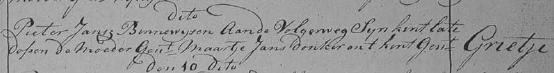 dito
Pieter Jansz Binnewijsen Aan de Volgerweg Syn kint late
dopen de Moeder Gent. Maartje Jans Donker ont kint Gent. Grietje
Den 10 dito